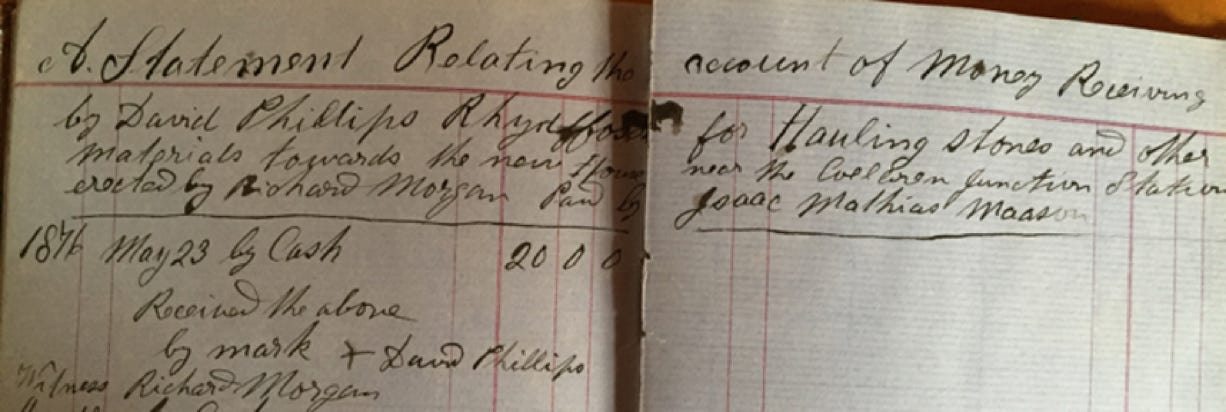 A. Statement Relating the account of Money Receiving
by David Phillips for Hauling stones and other
materials towards the new House near the Coelbren Junction Station
erected by Richard Morgan Paid by Isaac Mathias Maason
1876 May 23 by Cash 20 0 0
Received the above
by mark + David Phillips
Witness Richard Morgan